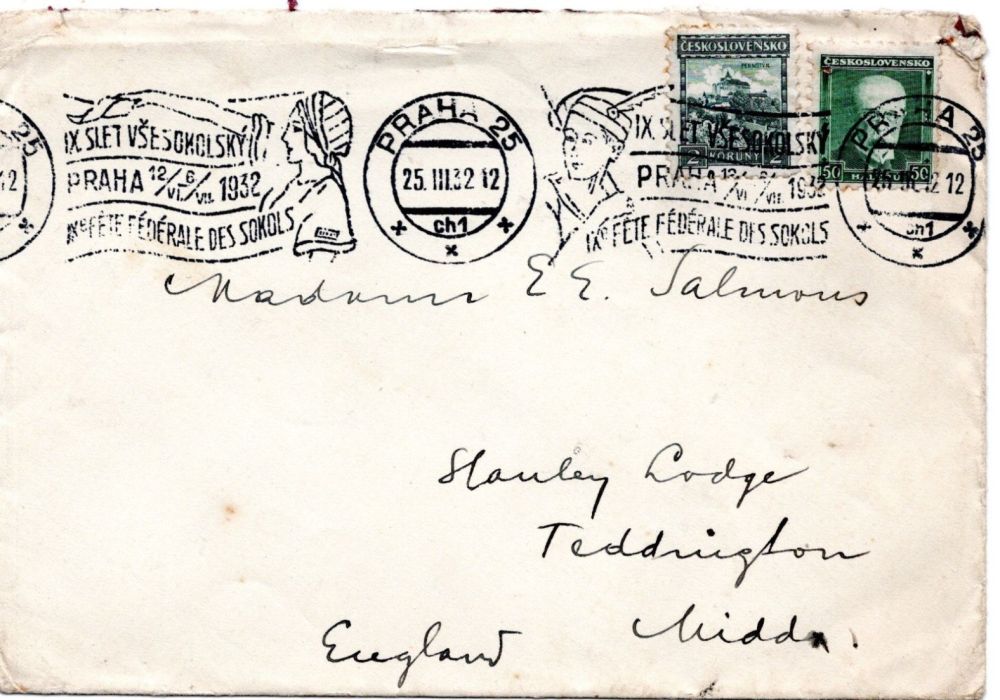 ČESKOSLOVENSKO
PERNŠTÝN
2 KORUNY 2
ČESKOSLOVENSKO
50 50
IX. SLET VŠESOKOLSKÝ
PRAHA 12/VI. 6/VII. 1932
IXe FÊTE FÉDÉRALE DES SOKOLS
PRAHA 25
25.III.32 12
ch1
IX. SLET VŠESOKOLSKÝ
PRAHA 12/VI. 6/VII. 1932
IXe FÊTE FÉDÉRALE DES SOKOLS
PRAHA 25
12
ch1
25
12
Madame E E. Salmons
Stanley Lodge
Teddington
Middx.
England